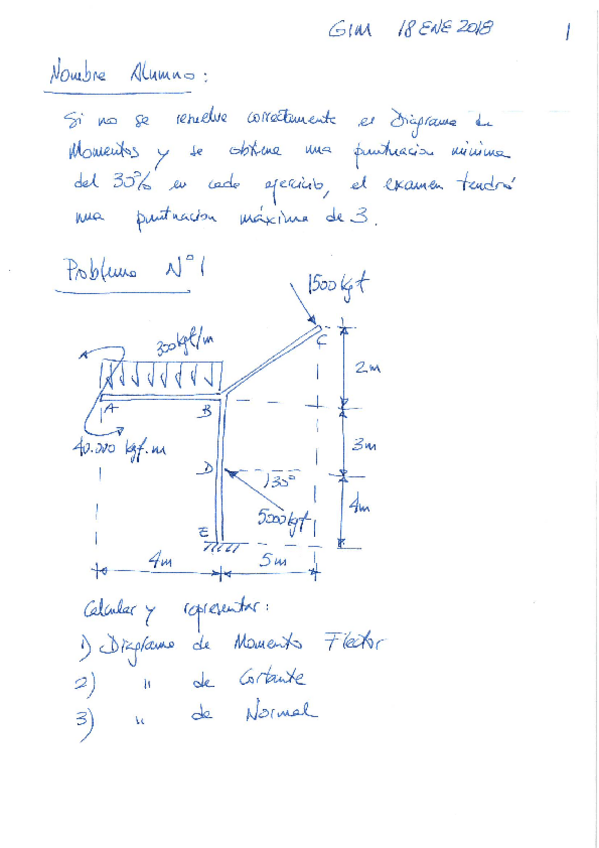 GIM 18 ENE 2018 1
Nombre Alumno:
Si no se resuelve correctamente el Diagrama de
Momentos y se obtiene una puntuacion minima
del 35% en cada ejercicio, el examen tendrá
una puntuacion máxima de 3.
Problema Nº 1
1500 kgf
300 kgf/m
C
2m
A
B
40.000 kgf.m
3m
D
30°
5000 kgf
4m
E
4m
5m
Calcular y representar:
1) Diagrama de Momento Flector
2) " de Cortante
3) " de Normal